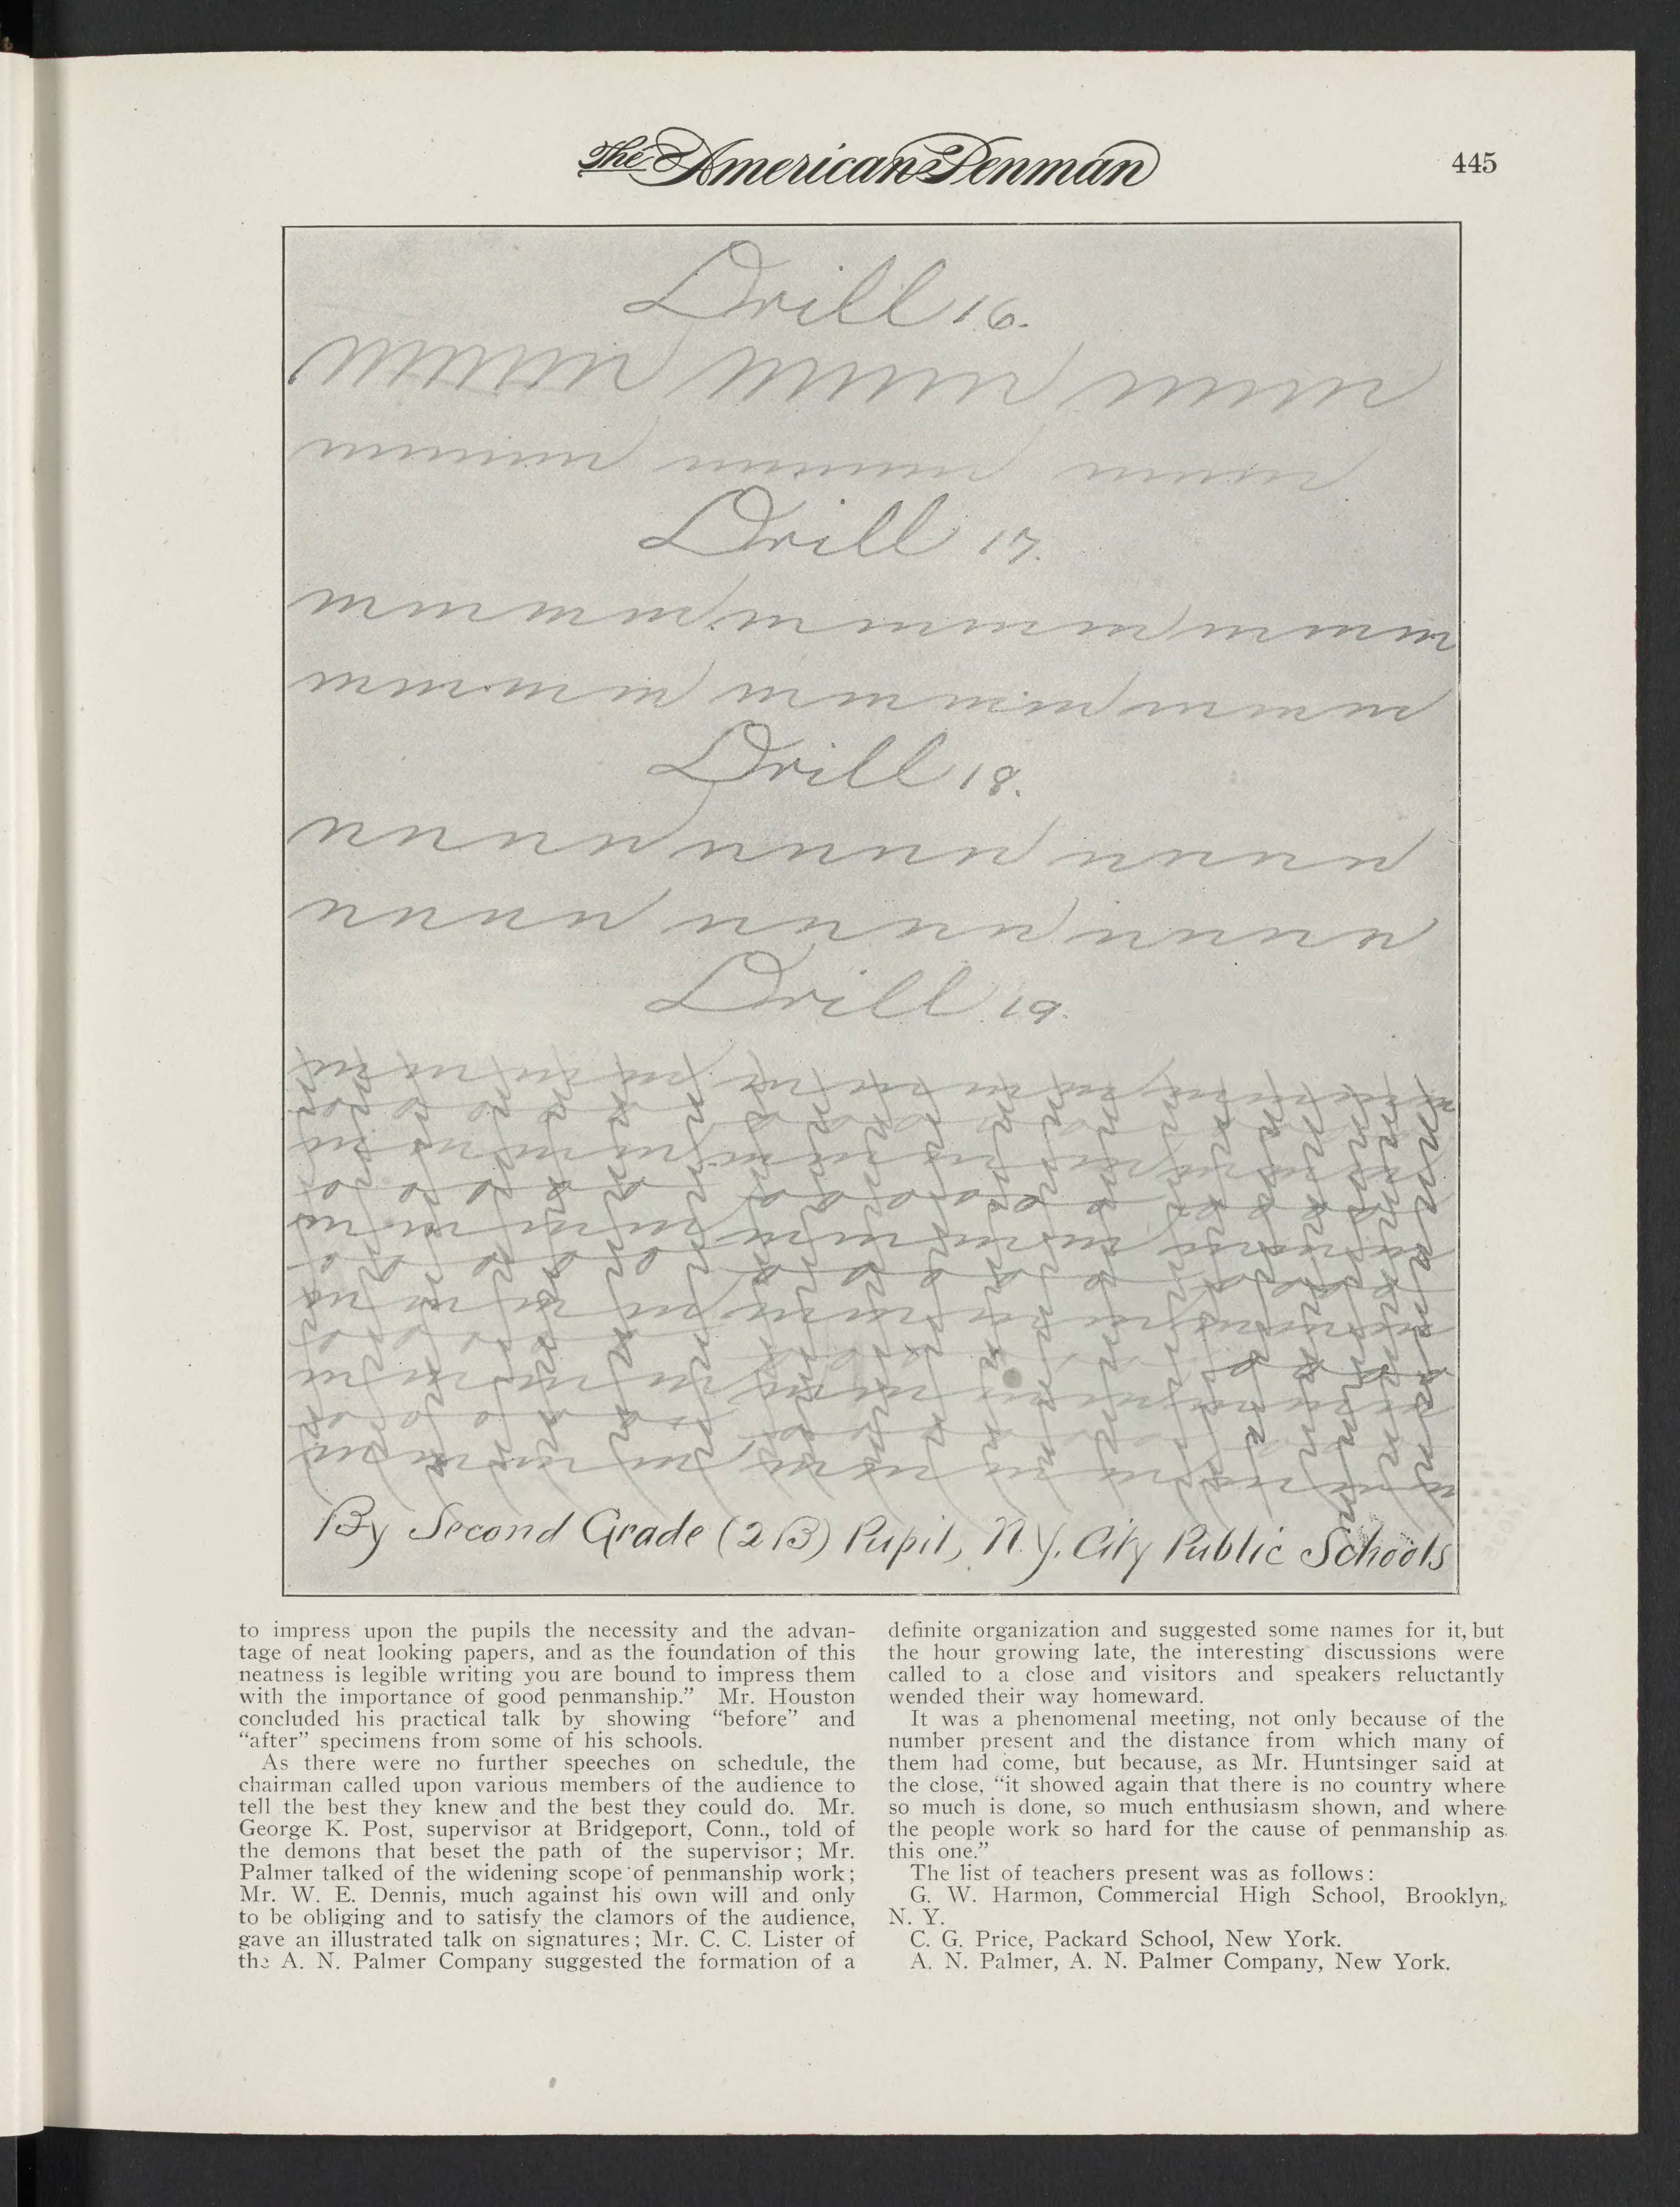 The American Penman
445
Drill 16.
mmmmm mmmm mmm
mmmmm mmmmm mmmm
Drill 17.
m m m m m m m m m m m m m
m m m m m m m m m m m m m
Drill 18.
n n n n n n n n n n n n n
n n n n n n n n n n n n n
Drill 19.
By Second Grade (2B) Pupil, N.Y. City Public Schools
to impress upon the pupils the necessity and the advan-
tage of neat looking papers, and as the foundation of this
neatness is legible writing you are bound to impress them
with the importance of good penmanship.” Mr. Houston
concluded his practical talk by showing “before” and
“after” specimens from some of his schools.
As there were no further speeches on schedule, the
chairman called upon various members of the audience to
tell the best they knew and the best they could do. Mr.
George K. Post, supervisor at Bridgeport, Conn., told of
the demons that beset the path of the supervisor; Mr.
Palmer talked of the widening scope of penmanship work;
Mr. W. E. Dennis, much against his own will and only
to be obliging and to satisfy the clamors of the audience,
gave an illustrated talk on signatures; Mr. C. C. Lister of
the A. N. Palmer Company suggested the formation of a
definite organization and suggested some names for it, but
the hour growing late, the interesting discussions were
called to a close and visitors and speakers reluctantly
wended their way homeward.
It was a phenomenal meeting, not only because of the
number present and the distance from which many of
them had come, but because, as Mr. Huntsinger said at
the close, “it showed again that there is no country where
so much is done, so much enthusiasm shown, and where
the people work so hard for the cause of penmanship as
this one.”
The list of teachers present was as follows:
G. W. Harmon, Commercial High School, Brooklyn,
N. Y.
C. G. Price, Packard School, New York.
A. N. Palmer, A. N. Palmer Company, New York.